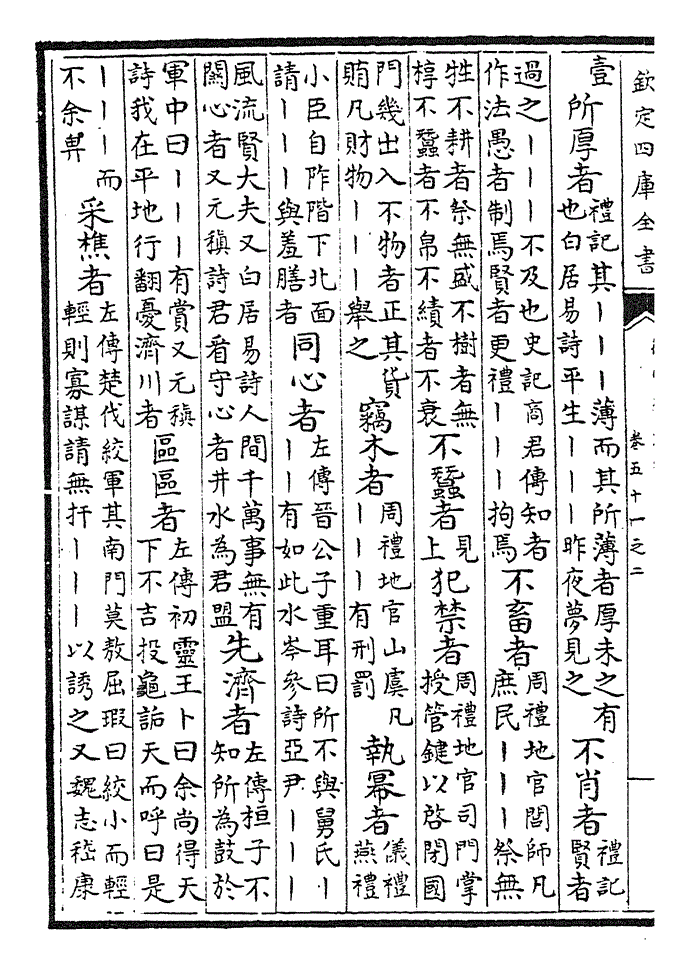 欽定四庫全書
卷五十一之二
壹 所厚者 禮記其丨丨丨薄而其所薄者厚未之有也白居易詩平生丨丨丨昨夜夢見之 不肖者 禮記賢者
過之丨丨丨不及也史記商君傳知者作法愚者制焉賢者更禮丨丨丨拘焉 不畜者 周禮地官閭師凡庶民丨丨丨祭無
牲不耕者祭無盛不樹者無椁不蠶者不帛不績者不衰 不蠶者 見上 犯禁者 周禮地官司門掌授管鍵以啓閉國
門幾出入不物者正其貨賄凡財物丨丨丨舉之 竊木者 周禮地官山虞凡丨丨丨有刑罰 執冪者 儀禮燕禮
小臣自阼階下北面請丨丨丨與羞膳者 同心者 左傳晉公子重耳曰所不與舅氏丨丨丨有如此水岑參詩亞尹丨丨丨
風流賢大夫又白居易詩人間千萬事無有關心者又元稹詩君看守心者井水為君盟 先濟者 左傳桓子不知所為鼓於
軍中曰丨丨丨有賞又元稹詩我在平地行翻憂濟川者 區區者 左傳初靈王卜曰余尚得天下不吉投龜詬天而呼曰是
丨丨丨而不余畀 采樵者 左傳楚伐絞軍其南門莫敖屈瑕曰絞小而輕輕則寡謀請無扞丨丨丨以誘之又魏志嵇康